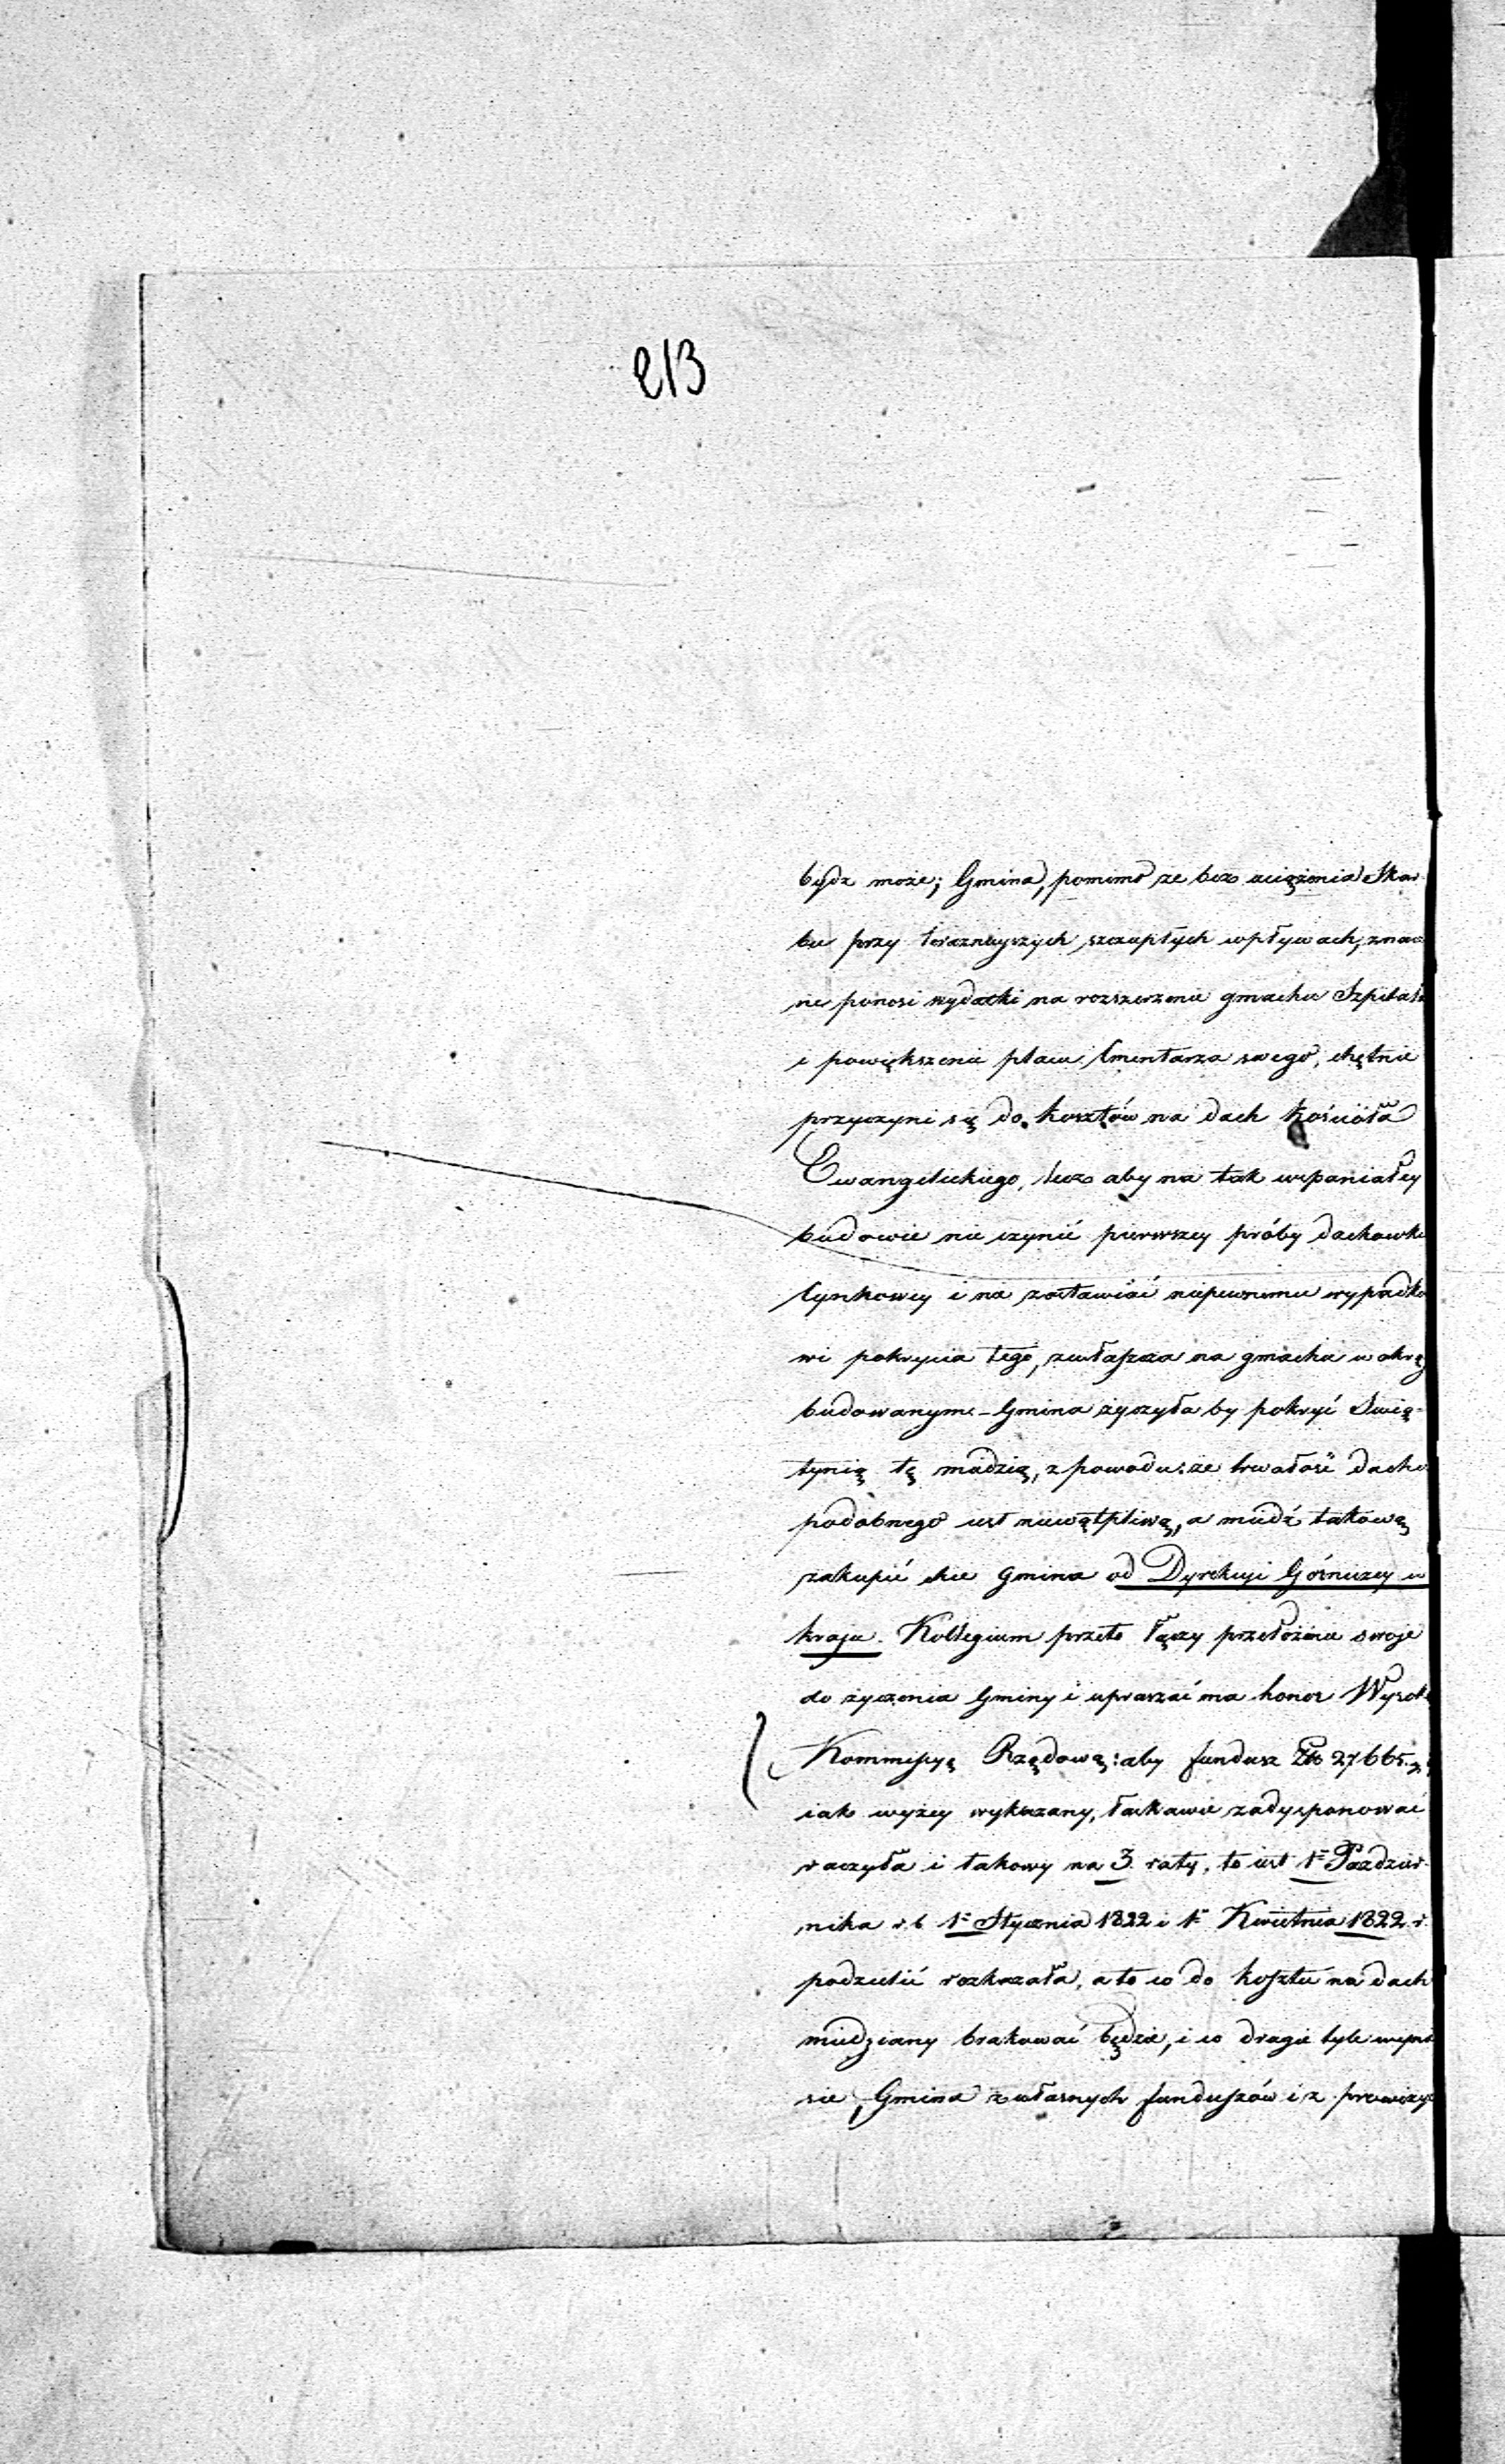 213
bydź może; Gmina, pomimo że bez uciążenia Skar-
bu przy teraznieyszych szczupłych wpływach, znacz
ne ponosi wydatki na rozszerzenie gmachu Szpitala
i powiększenie placu Cmentarza swego, chętnie
przyczyni się do kosztów na dach Kościoła
Ewangelickiego, lecz aby na tak wspaniałey
budowie nie czynić pierwszey próby dachowki
Cynkowey i nie zostawiać niepewnemu wypadko
wi pokrycia tego, zwłaszcza na gmachu w okrąg
budowanym – Gmina życzyła by pokryć Swią-
tynią tę miedzią, z powodu: że trwałość dachu
podobnego iest niewątpliwą, a miedź takową
zakupić chce Gmina od Dyrekcyi Górniczey w
kraju. Kollegium przeto łączy przełożenie swoje
do życzenia Gminy i upraszać ma honor Wysok
Kommissyą Rządową: aby fundusz Złp 27665.
iak wyżey wykazany, łaskawie zadysponować
raczyła i takowy na 3. raty, to iest 1º Paździer-
nika r. b 1º Stycznia 1822 i 1º Kwietnia 1822 r.
podzielić rozkazała, a to co do kosztu na dach
miedziany brakować będzie, i co drugie tyle wynie
sie, Gmina z własnych funduszów i z prowizyi